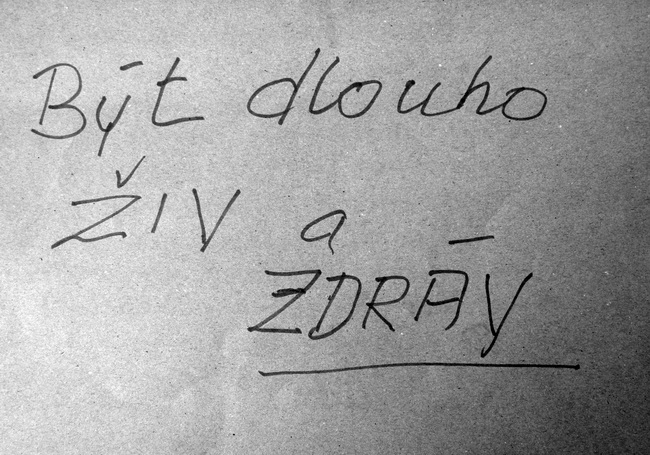 Být dlouho
ŽIV a
ZDRÁV